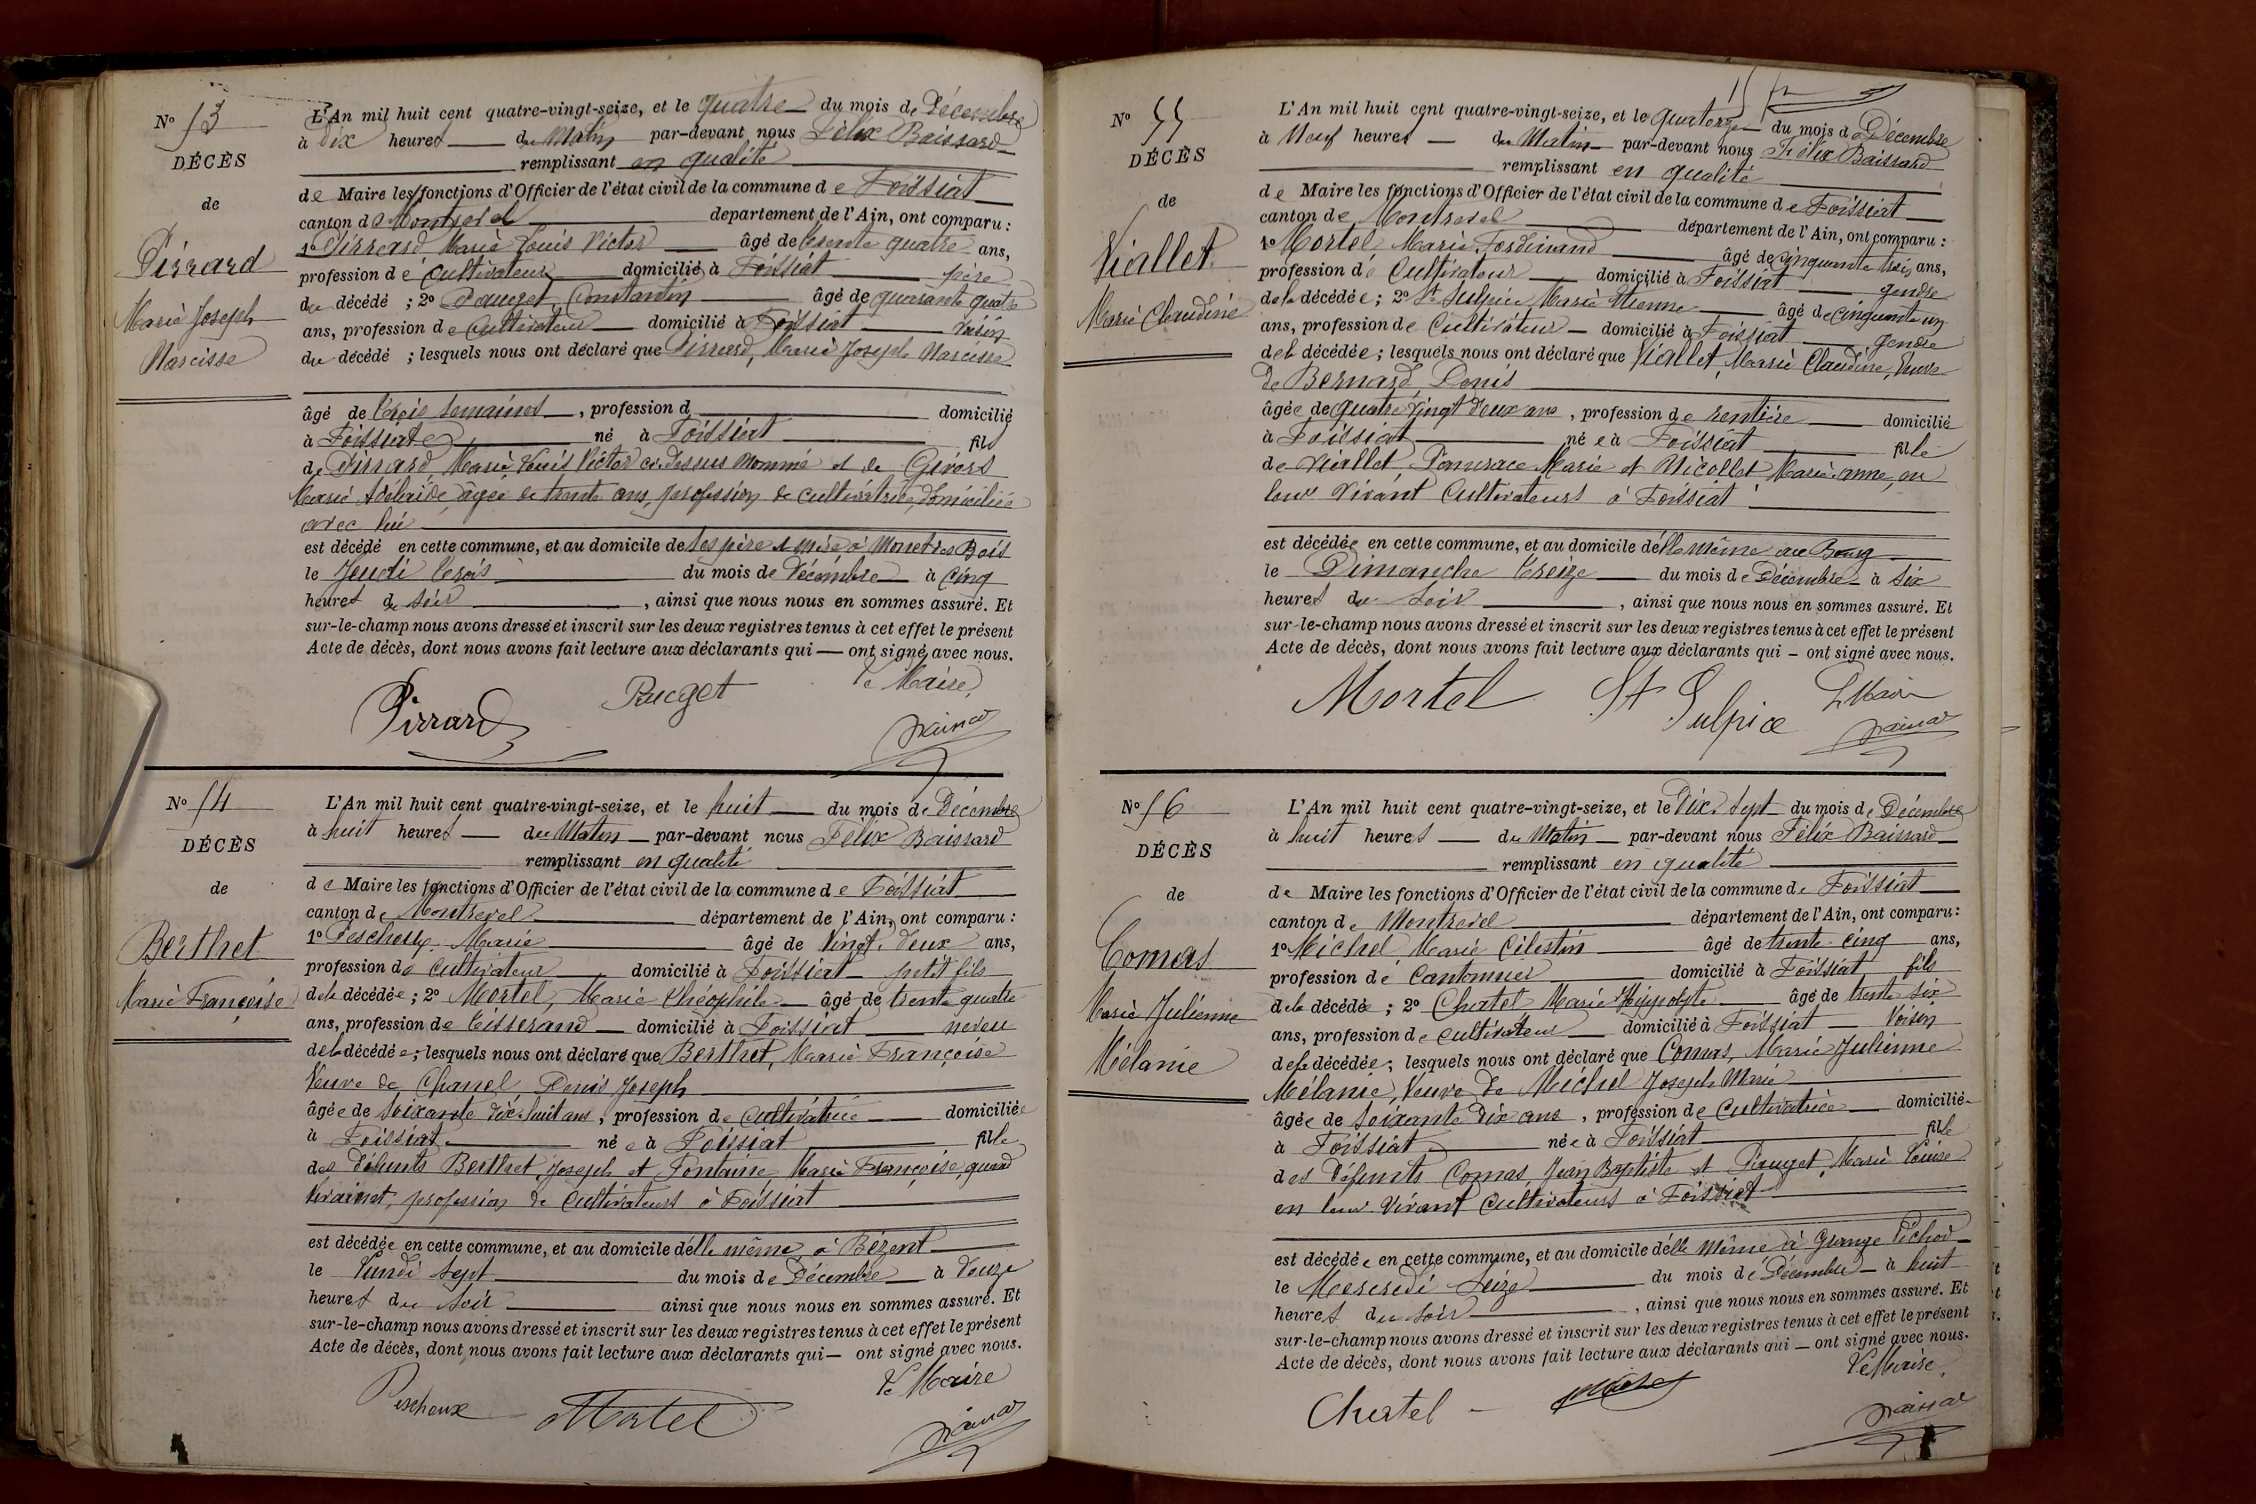 N° 53
DÉCÈS
de
Pirrard
Marie Joseph
Narcisse
L'An mil huit cent quatre-vingt-seize, et le quatre du mois de Décembre
à dix heures du Matin par-devant nous Félix Baissard
remplissant en qualité
de Maire les fonctions d'Officier de l'état civil de la commune de Foissiat
canton de Montrevel departement de l'Ain, ont comparu :
1° Pirrard Marie Louis Victor âgé de trente quatre ans,
profession de cultivateur domicilié à Foissiat père
du décédé ; 2° Pauget Constantin âgé de quarante quatre
ans, profession de cultivateur domicilié à Foissiat voisin
du décédé ; lesquels nous ont déclaré que Pirrard, Marie Joseph Narcisse
âgé de trois semaines , profession d domicilié
à Foissiat né à Foissiat fils
de Pirrard Marie Louis Victor ci-dessus nommé et de Givord
Marie Adélaïde, âgée de trente ans, profession de cultivatrice, domiciliée
avec lui
est décédé en cette commune, et au domicile de ses père et mère à Monet des Bois
le Jeudi trois du mois de Décembre à cinq
heures du soir , ainsi que nous nous en sommes assuré. Et
sur-le-champ nous avons dressé et inscrit sur les deux registres tenus à cet effet le présent
Acte de décès, dont nous avons fait lecture aux déclarants qui — ont signé avec nous.
Pirrard Pauget Le Maire,
N° 54
DÉCÈS
de
Berthet
Marie Françoise
L'An mil huit cent quatre-vingt-seize, et le huit du mois de Décembre
à huit heures du Matin par-devant nous Félix Baissard
remplissant en qualité
de Maire les fonctions d'Officier de l'état civil de la commune de Foissiat
canton de Montrevel département de l'Ain, ont comparu :
1° Pescheux Marie âgé de vingt deux ans,
profession de cultivateur domicilié à Foissiat petit fils
de la décédée ; 2° Mortel, Marie Théophile âgé de trente quatre
ans, profession de tisserand domicilié à Foissiat neveu
de la décédée ; lesquels nous ont déclaré que Berthet, Marie Françoise
Veuve de Chanel, Denis Joseph
âgée de soixante dix-huit ans, profession de cultivatrice domiciliée
à Foissiat née à Foissiat fille
des défunts Berthet Joseph et Fontaine, Marie Françoise, quand
vivaient, profession de cultivateurs à Foissiat
est décédée en cette commune, et au domicile d'elle même à Bézent
le Lundi sept du mois de Décembre à douze
heures du soir ainsi que nous nous en sommes assuré. Et
sur-le-champ nous avons dressé et inscrit sur les deux registres tenus à cet effet le présent
Acte de décès, dont nous avons fait lecture aux déclarants qui — ont signé avec nous.
Pescheux Mortel Le Maire
N° 55
DÉCÈS
de
Viallet
Marie Claudine
L'An mil huit cent quatre-vingt-seize, et le quatorze du mois de Décembre
à Neuf heures du Matin par-devant nous Félix Baissard
remplissant en qualité
de Maire les fonctions d'Officier de l'état civil de la commune de Foissiat
canton de Montrevel département de l'Ain, ont comparu :
1° Mortel Marie Ferdinand âgé de cinquante trois ans,
profession de Cultivateur domicilié à Foissiat gendre
de la décédée ; 2° St Sulpice Marie Etienne âgé de cinquante un
ans, profession de Cultivateur domicilié à Foissiat gendre
de la décédée ; lesquels nous ont déclaré que Viallet, Marie Claudine, Veuve
de Bernard, Denis
âgée de quatre vingt deux ans , profession de rentière domicilié
à Foissiat née à Foissiat fille
de Viallet Pancrace Marie et Nicollet Marie-anne, en
leur vivant Cultivateurs à Foissiat
est décédée en cette commune, et au domicile d'elle même au Bourg
le Dimanche treize du mois de Décembre à six
heures du soir , ainsi que nous nous en sommes assuré. Et
sur-le-champ nous avons dressé et inscrit sur les deux registres tenus à cet effet le présent
Acte de décès, dont nous avons fait lecture aux déclarants qui — ont signé avec nous.
Mortel St Sulpice Le Maire
N° 56
DÉCÈS
de
Comas
Marie Julienne
Mélanie
L'An mil huit cent quatre-vingt-seize, et le Dix-Sept du mois de Décembre
à huit heures du Matin par-devant nous Félix Baissard
remplissant en qualité
de Maire les fonctions d'Officier de l'état civil de la commune de Foissiat
canton de Montrevel département de l'Ain, ont comparu :
1° Michel Marie Célestin âgé de trente cinq ans,
profession de Cantonnier domicilié à Foissiat fils
de la décédé ; 2° Chatel Marie Hippolyte âgé de trente six
ans, profession de cultivateur domicilié à Foissiat Voisin
de la décédée ; lesquels nous ont déclaré que Comas, Marie Julienne
Mélanie, Veuve de Michel Joseph Marie
âgée de soixante dix ans , profession de Cultivatrice domicilié
à Foissiat née à Foissiat fille
des défunts Comas, Jean Baptiste et Pauget Marie Louise
en leur vivant Cultivateurs à Foissiat
est décédée en cette commune, et au domicile d'elle même à Grange Péchod
le Mercredi seize du mois de Décembre à huit
heures du soir , ainsi que nous nous en sommes assuré. Et
sur-le-champ nous avons dressé et inscrit sur les deux registres tenus à cet effet le présent
Acte de décès, dont nous avons fait lecture aux déclarants qui — ont signé avec nous.
Chatel Michel Le Maire,